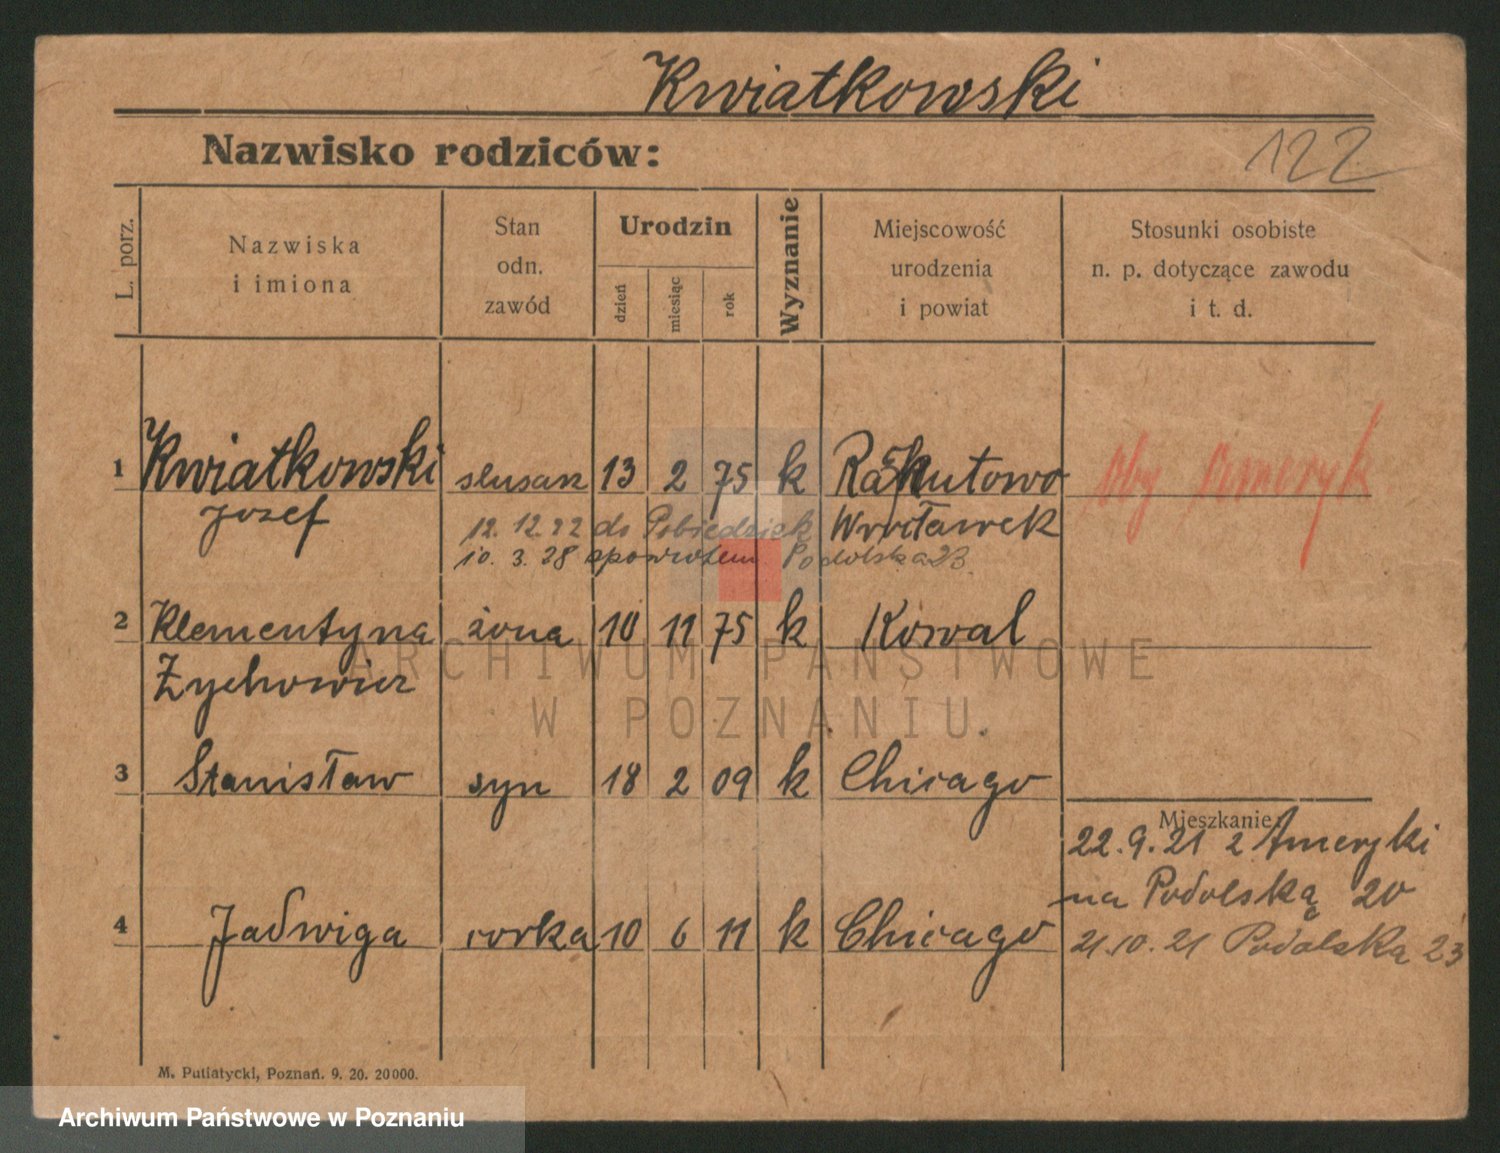 Kwiatkowski
Nazwisko rodziców:
122
L. porz.
Nazwiska i imiona
Stan odn. zawód
Urodzin
dzień
miesiąc
rok
Wyznanie
Miejscowość urodzenia i powiat
Stosunki osobiste n. p. dotyczące zawodu i t. d.
1 Kwiatkowski slusarz 13 2 75 k Rakutowo Oby Ameryk
Jozef 12.12.22 do Pobiedzisk Wrocławek
10. 3. 28 spowrotem Podolska 23
2 Klementyna żona 10 11 75 k Kowal
Zychowicz
3 Stanisław syn 18 2 09 k Chicago
Mieszkanie:
22.9.21 z Ameryki
na Podolską 20
4 Jadwiga corka 10 6 11 k Chicago 21.10.21 Podolska 23
M. Putiatycki, Poznań. 9. 20. 20000.
ARCHIWUM PAŃSTWOWE
W POZNANIU
Archiwum Państwowe w Poznaniu